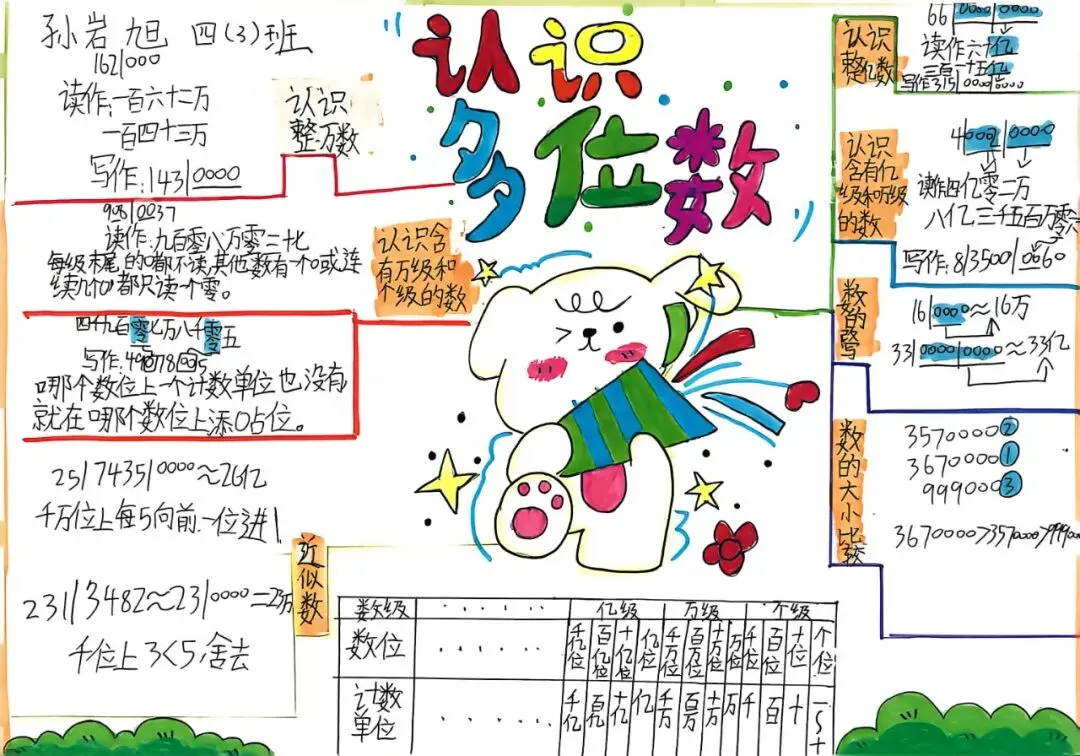 孙岩旭 四(3)班
认识
多位数
认识
整万数
162|000
读作:一百六十二万
一百四十三万
写作:143|0000
认识含
有万级和
个级的数
908|0037
读作:九百零八万零三十七
每级末尾的0都不读其他数有一个0或连
续几个0都只读一个零。
四千九百零七万八千零五
写作:4907|8005
哪个数位上一个计数单位也没有
就在哪个数位上添0占位。
近似数
25|7435|0000≈26亿
千万位上每5向前一位进1
231|3482≈231|0000=231万
千位上3<5舍去
认识
整亿数
66|0000|0000
读作六十亿
三百一十五亿
写作315|0000|0000
认识
含有亿
级和万级
的数
4|0002|0000
读作四亿零二万
八亿三千五百万零六
写作:8|3500|0060
16|0000≈16万
33|0000|0000≈33亿
数的大小比较
3570000②
3670000①
999000③
3670000>3570000>999000
数级 ...... 亿级 万级 个级
数位 ...... 千亿位 百亿位 十亿位 亿位 千万位 百万位 十万位 万位 千位 百位 十位 个位
计数单位 ...... 千亿 百亿 十亿 亿 千万 百万 十万 万 千 百 十